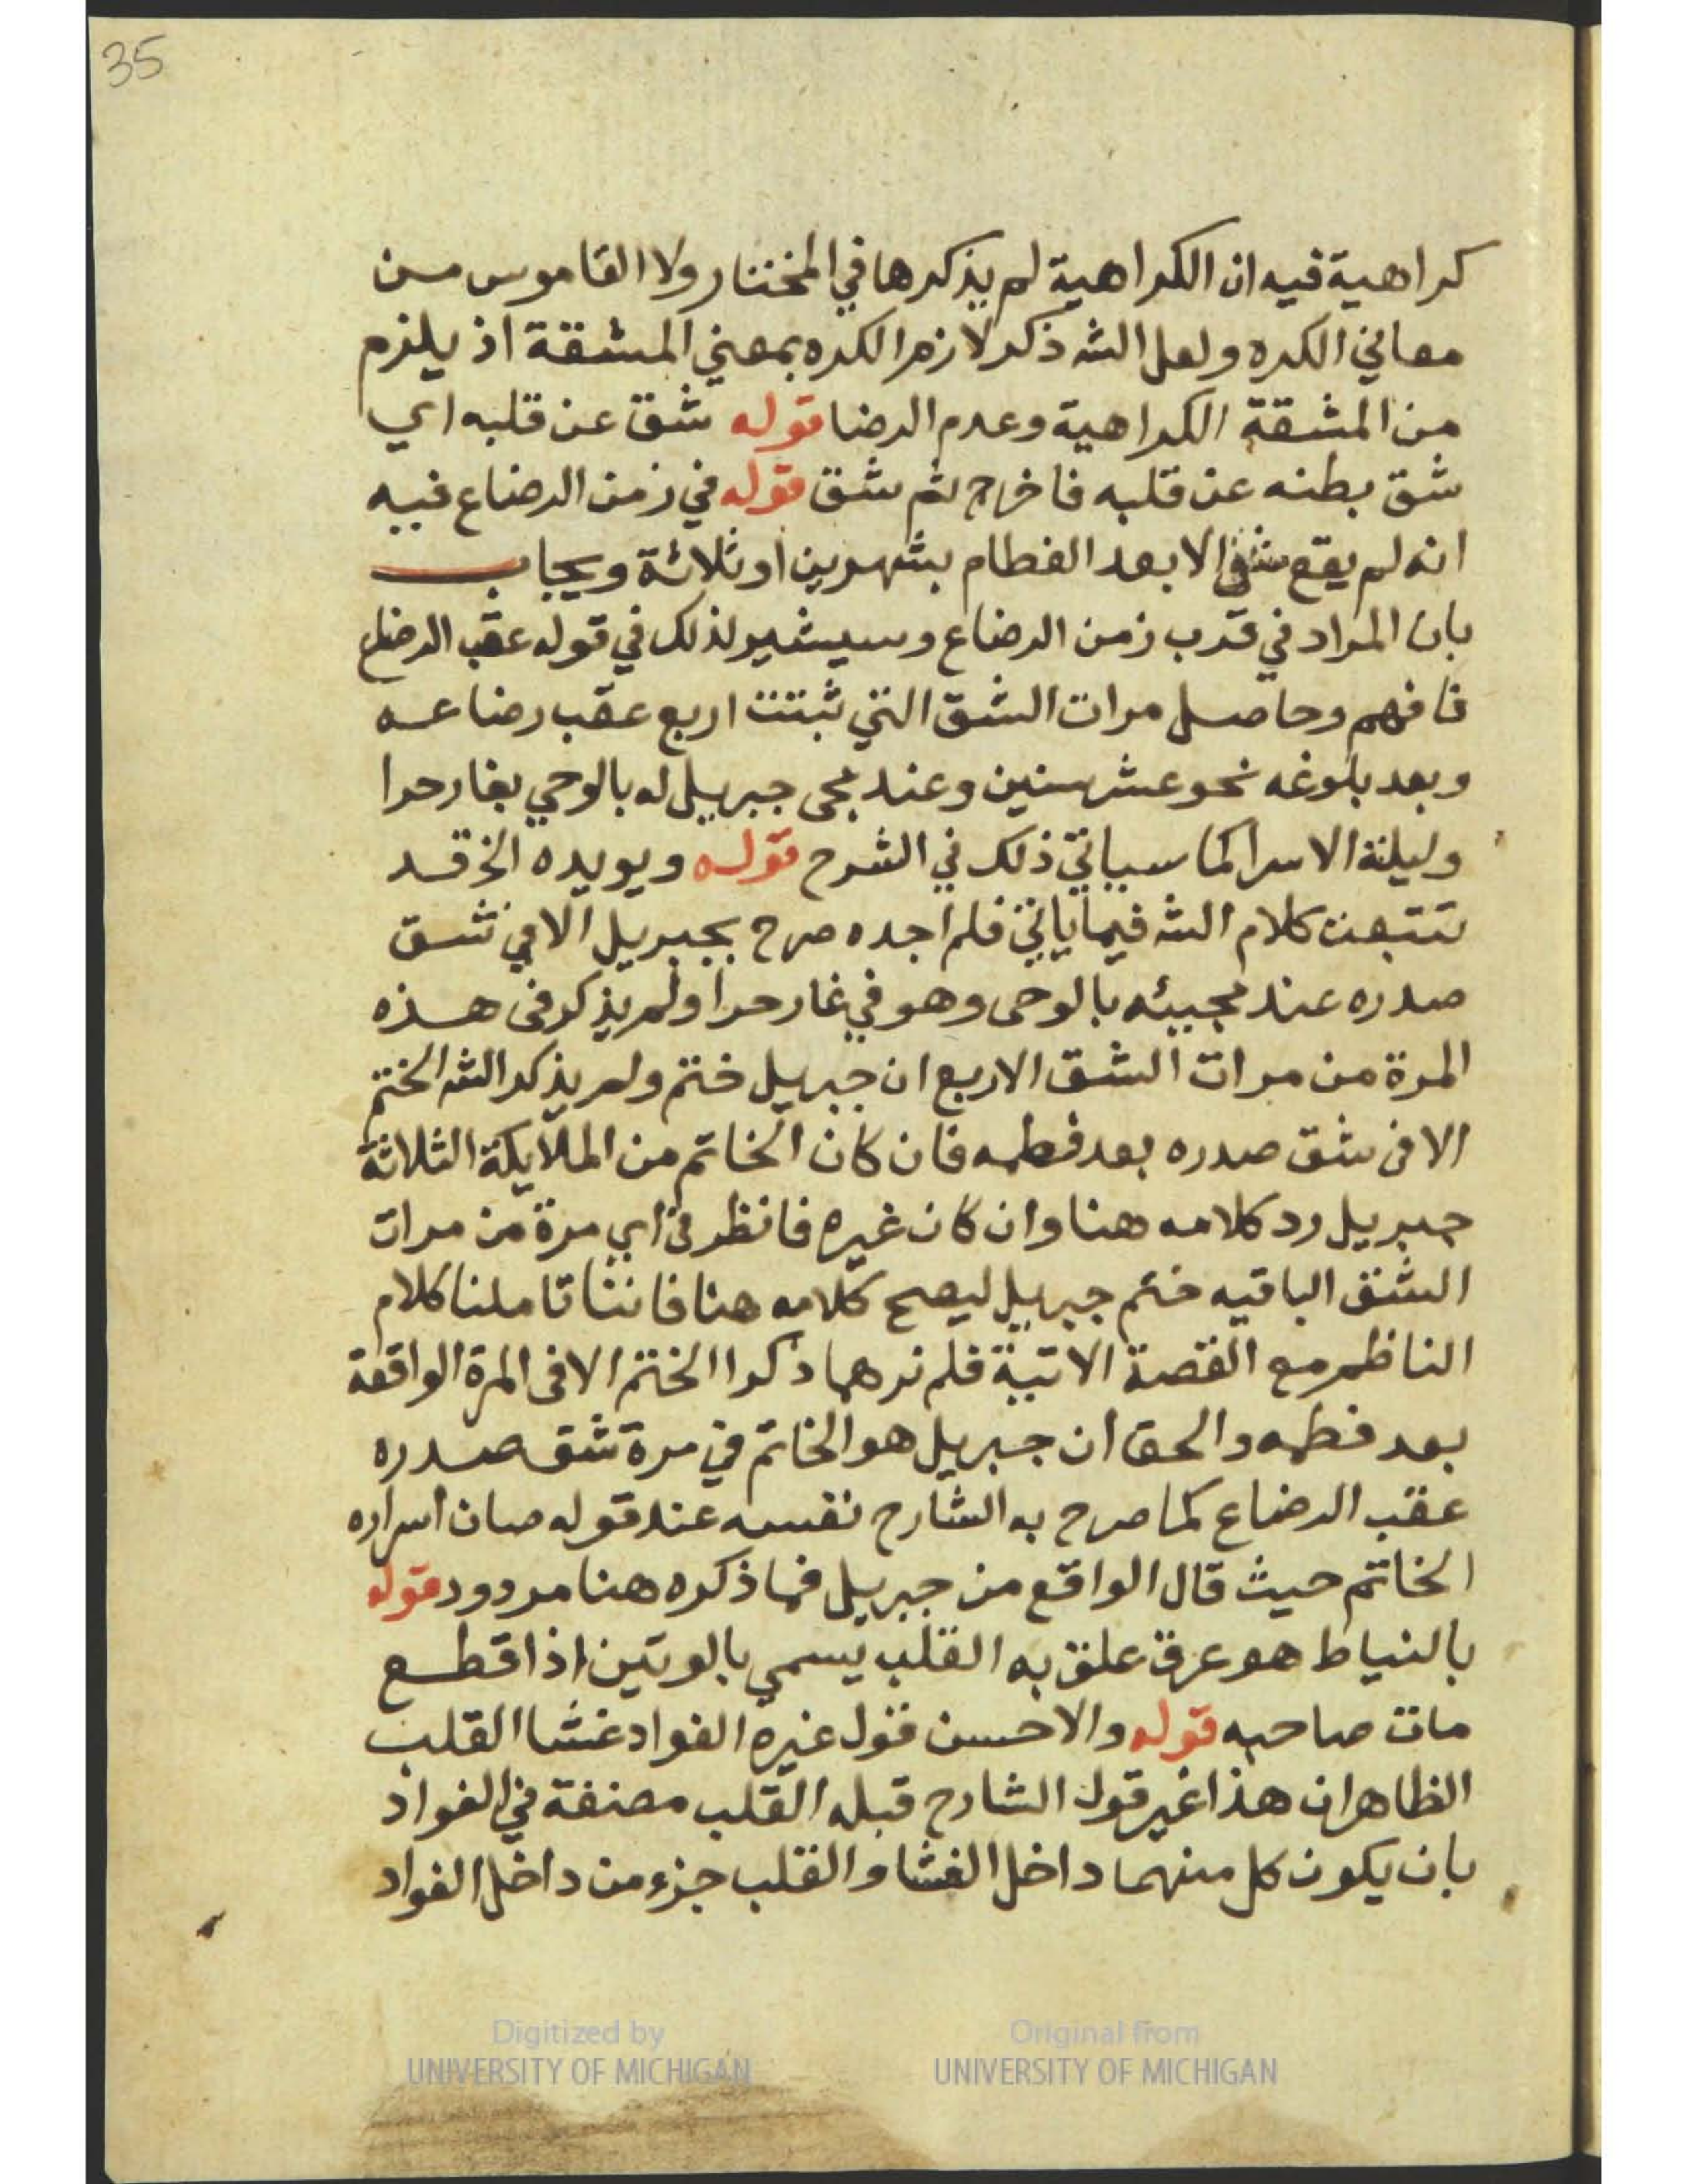 35
كراهية فيه ان الكراهية لم يذكرها في المختار ولا القاموس من
معاني الكره ولعل الشه ذكر لازم الكره بمعني المشقة اذ يلزم
من المشقة الكراهية وعدم الرضا قوله شق عن قلبه اي
شق بطنه عن قلبه فاخرج ثم شق قوله في زمن الرضاع فيه
انه لم يقع شق الا بعد الفطام بشهرين او ثلاثة ويجاب
بان المراد في قرب زمن الرضاع وسيشير لذلك في قوله عقب الرضاع
فافهم وحاصل مرات الشق التي ثبتت اربع عقب رضاعه
وبعد بلوغه نحو عشر سنين وعند مجى جبريل له بالوحي بغار حرا
وليلة الاسرا كما سياتي ذلك في الشرح قوله ويويده الخ قد
تتبعت كلام الشه فيما ياتي فلم اجده صرح بجبريل الا في شق
صدره عند مجيئه بالوحى وهو في غار حرا ولم يذكر فى هذه
المرة من مرات الشق الاربع ان جبريل ختم ولم يذكر الشه الختم
الا فى شق صدره بعد فطمه فان كان الخاتم من الملايكة الثلاثة
جبريل رد كلامه هنا وان كان غيره فانظر فى اي مرة من مرات
الشق الباقيه ختم جبريل ليصح كلامه هنا فاننا تاملنا كلام
الناظم مع القصة الاتية فلم نرهما ذكرا الختم الا فى المرة الواقعة
بعد فطمه والحق ان جبريل هو الخاتم في مرة شق صدره
عقب الرضاع كما صرح به الشارح نفسه عند قوله صان اسراره
الخاتم حيث قال الواقع من جبريل فما ذكره هنا مردود قوله
بالنياط هو عرق علق به القلب يسمي بالوتين اذا قطع
مات صاحبه قوله والاحسن قول غيره الفواد غشا القلب
الظاهر ان هذا غير قول الشارح قبله القلب مضغة في الفواد
بان يكون كل منهما داخل الغشا والقلب جزء من داخل الفواد
Digitized by UNIVERSITY OF MICHIGAN
Original from UNIVERSITY OF MICHIGAN